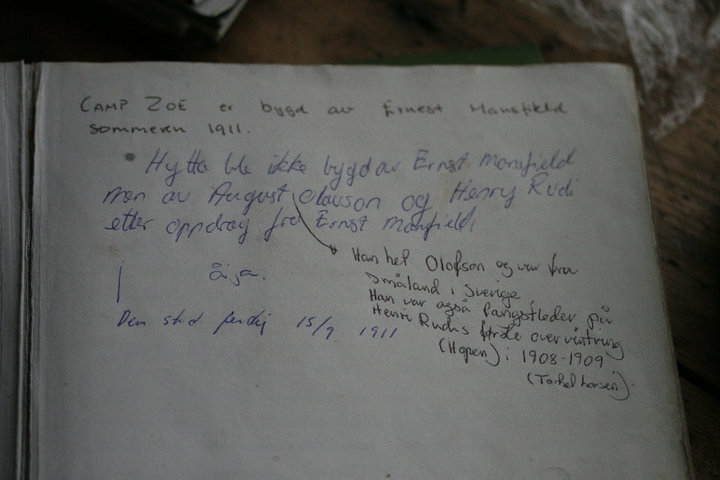 CAMP ZOE er bygd av Ernest Mansfield
sommeren 1911.
Hytta ble ikke bygd av Ernst Mansfield
men av August Olavson og Henry Rudi
etter oppdrag fra Ernst Mansfield,
Han het Olofson og var fra
Småland i Sverige
Han var også fangstleder på
Henri Rudis første overvintring
(Hopen) i 1908-1909
(Torkel
å ja.
Den stod ferdig 15/9 1911